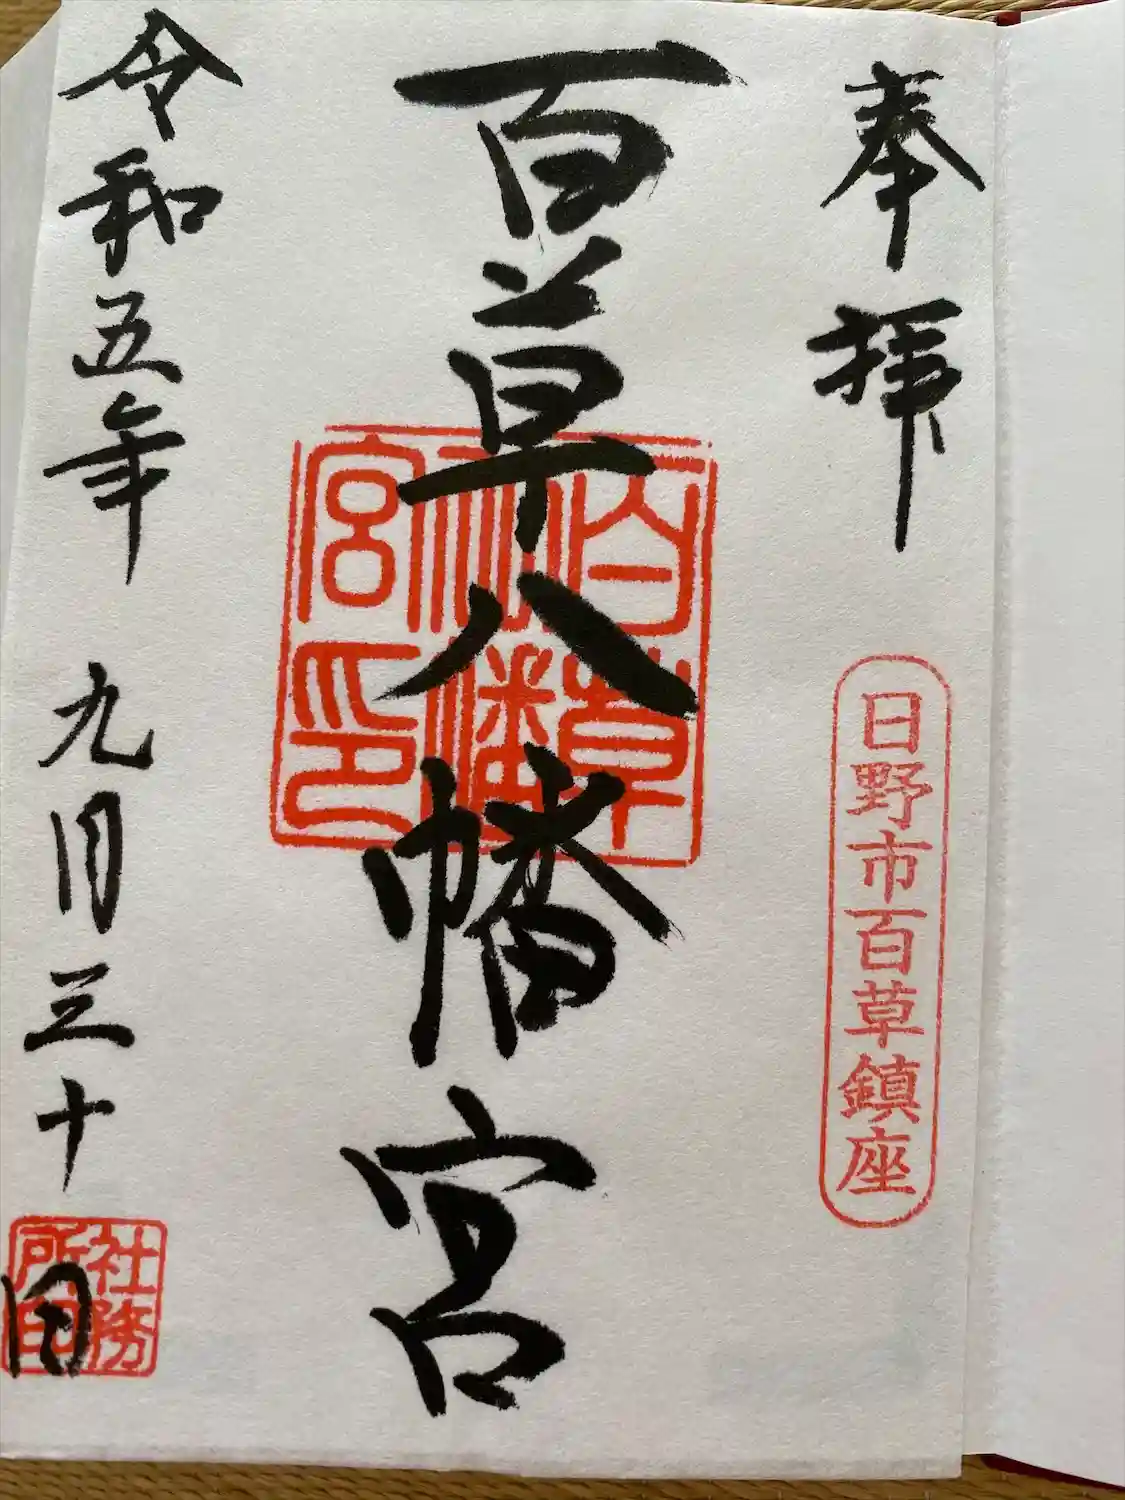 奉拝
日野市百草鎮座
百草八幡宮
百草八幡宮印
令和五年九月三十日
社務所印